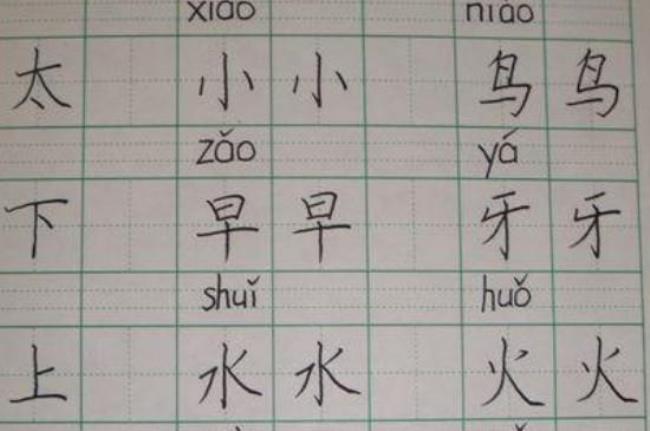 xiǎo niǎo
太 小 小 鸟 鸟
zǎo yá
下 早 早 牙 牙
shuǐ huǒ
上 水 水 火 火